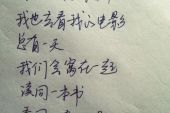 我也去看我的电影
总有一天
我们会窝在一起
读同一本书